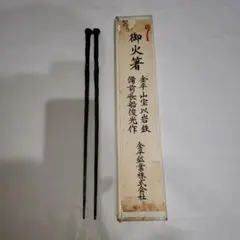 御火箸
金平山宝以岩鉄
備前長船俊光作
金平鉱業株式会社